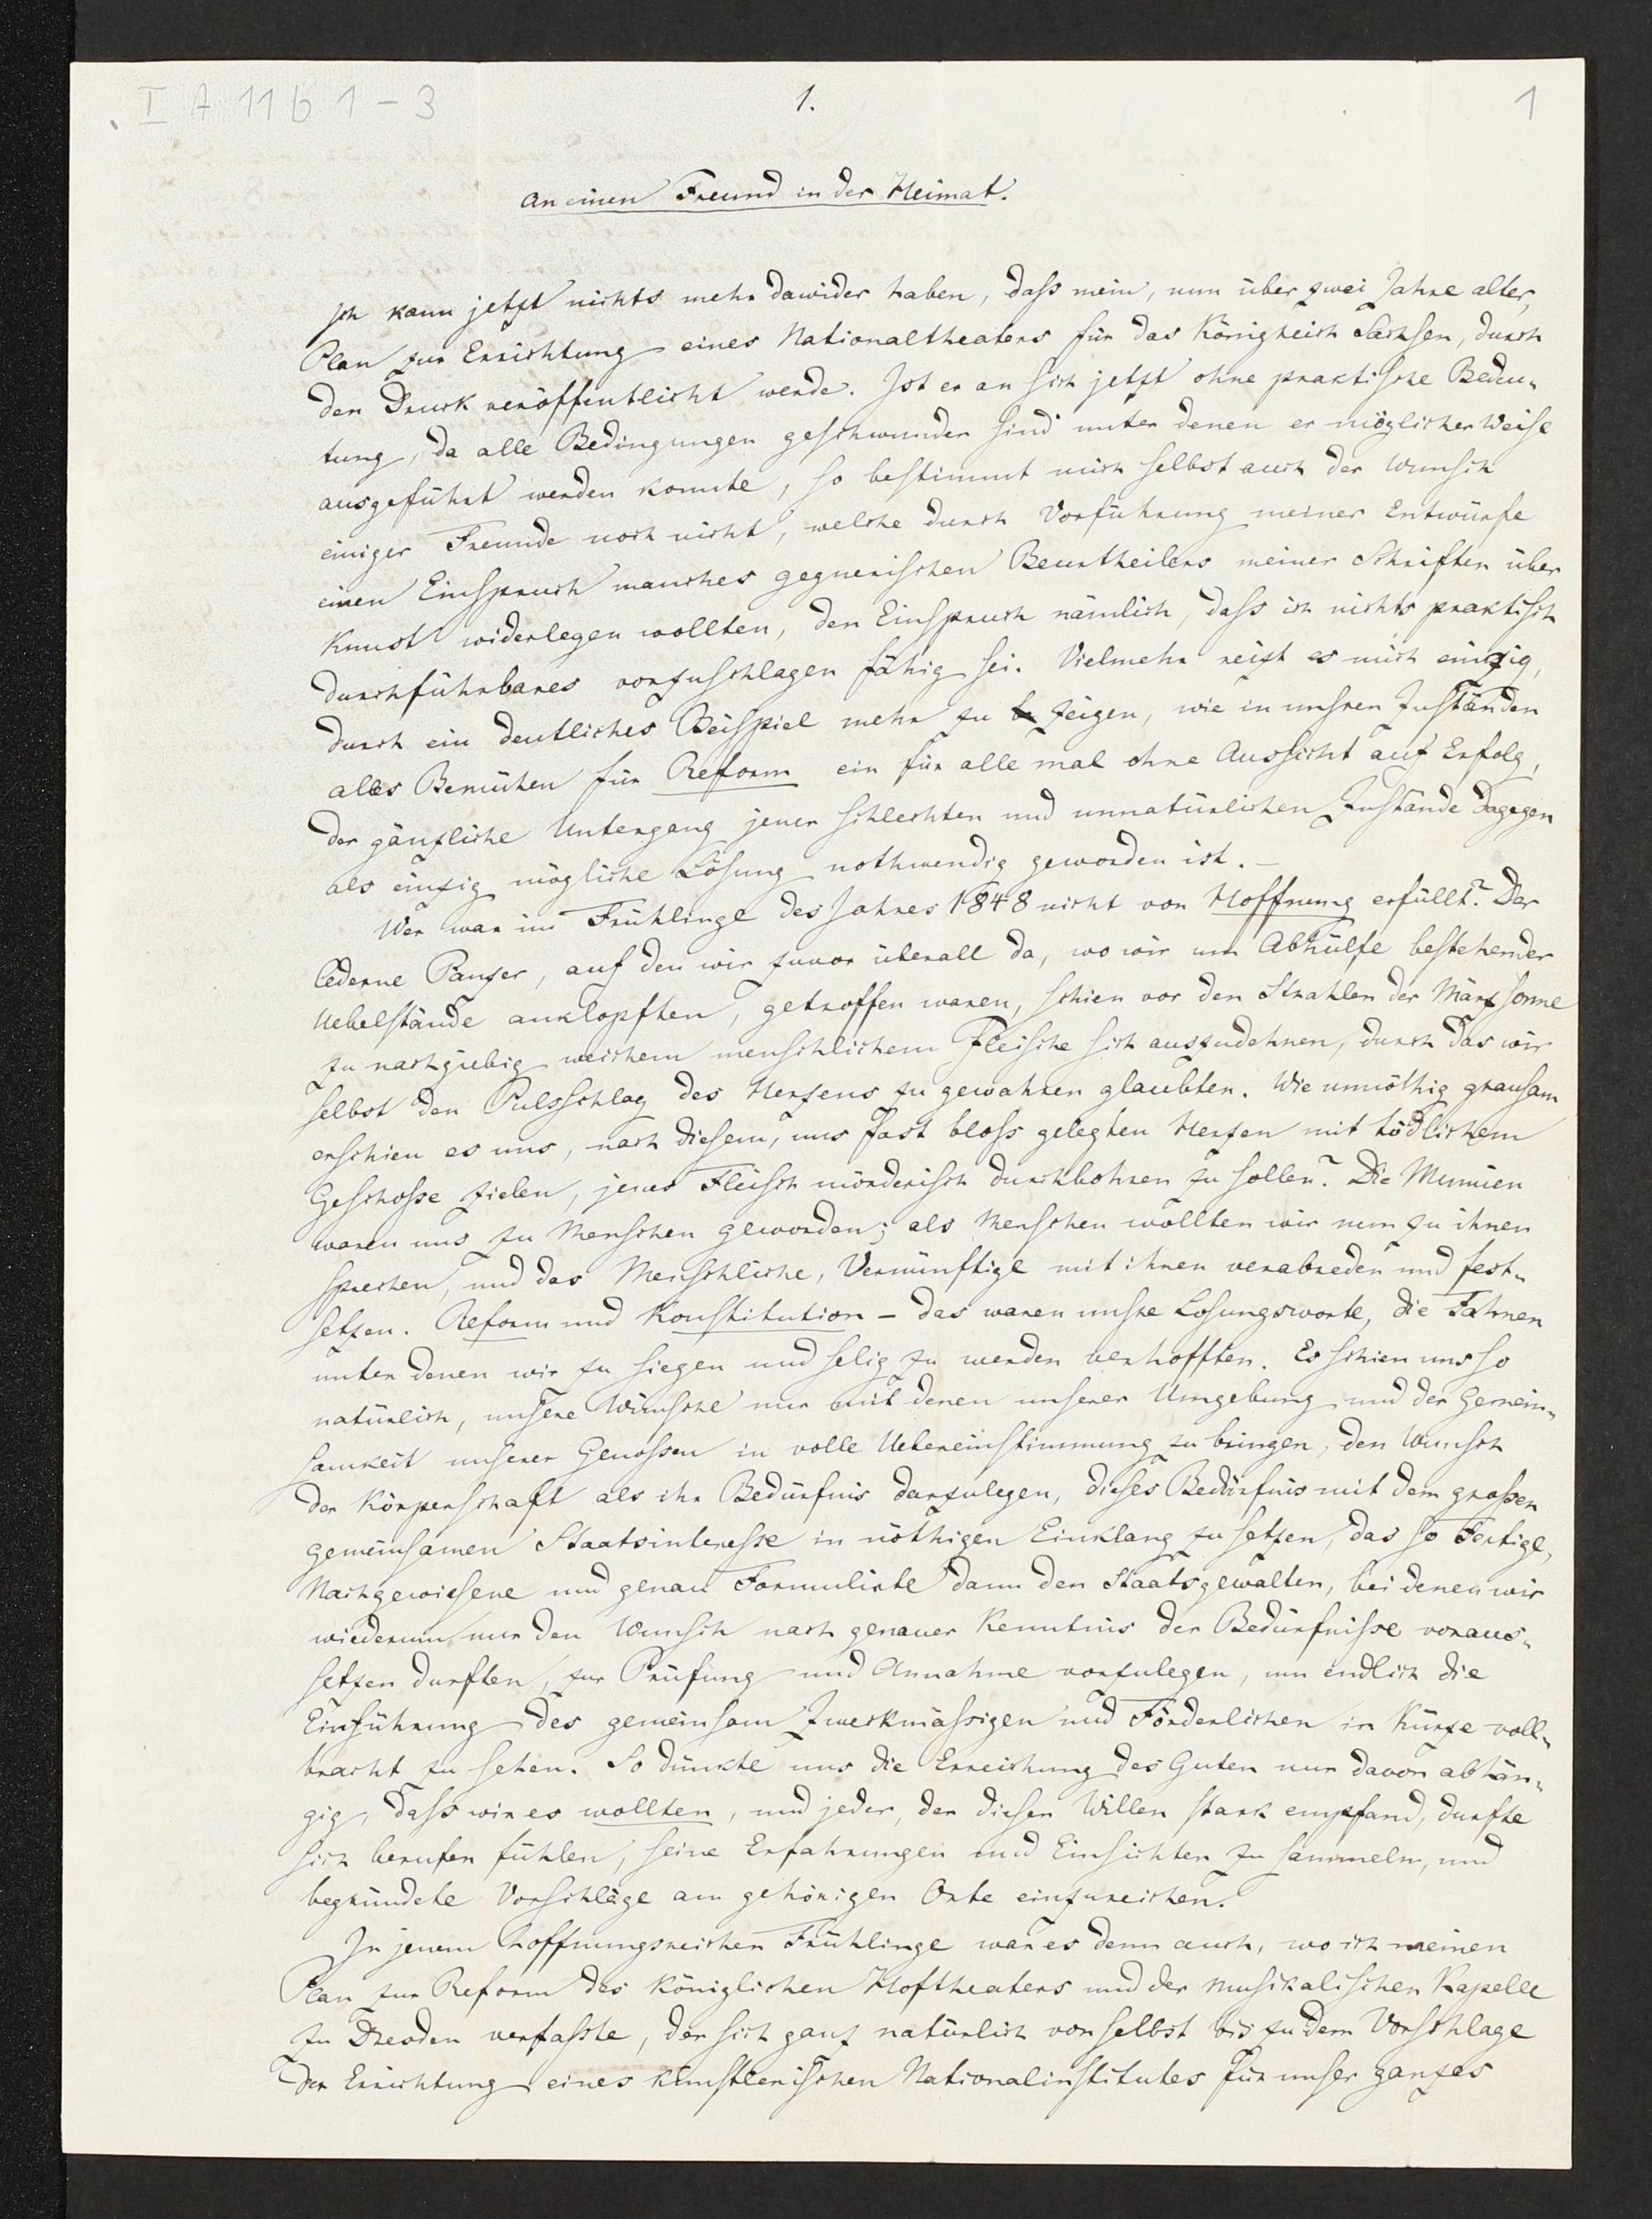 I A 11 b 1-3
1.
1
An einen Freund in der Heimat.
Ich kann jetzt nichts mehr dawider haben, dass mein, nun über zwei Jahre alter,
Plan zur Errichtung eines Nationaltheaters für das Königreich Sachsen, durch
den Druck veröffentlicht werde. Ist er an sich jetzt ohne praktische Bedeu-
tung, da alle Bedingungen geschwunden sind unter denen er möglicher Weise
ausgeführt werden konnte, so bestimmt mich selbst auch der Wunsch
einiger Freunde noch nicht, welche durch Vorführung meiner Entwürfe
einen Einspruch manches gegnerischen Beurtheilers meiner Schriften über
Kunst widerlegen wollten, den Einspruch nämlich, dass ich nichts praktisch
durchführbares vorzuschlagen fähig sei. Vielmehr reizt es mich einzig,
durch ein deutliches Beispiel mehr zu zeigen, wie in unsren Zuständen
alles Bemühen für Reform ein für alle mal ohne Aussicht auf Erfolg,
der gänzliche Untergang jener schlechten und unnatürlichen Zustände dagegen
als einzig mögliche Lösung nothwendig geworden ist. –
Wer war im Frühlinge des Jahres 1848 nicht von Hoffnung erfüllt? Der
lederne Panzer, auf den wir zuvor überall da, wo wir um Abhülfe bestehender
Uebelstände anklopften, getroffen waren, schien vor den Strahlen der Märzsonne
zu nachgiebig weichem menschlichem Fleische sich auszudehnen, durch das wir
selbst den Pulsschlag des Herzens zu gewahren glaubten. Wie unnöthig grausam
erschien es uns, nach diesem, uns fast bloss gelegten Herzen mit tödlichem
Geschosse zielen, jenes Fleisch mörderisch durchbohren zu sollen? Die Mumien
waren uns zu Menschen geworden; als Menschen wollten wir nun zu ihnen
sprechen, und das Menschliche, Vernünftige mit ihnen verabreden und fest-
setzen. Reform und Konstitution – das waren unsre Losungsworte, die Fahnen
unter denen wir zu siegen und selig zu werden verhofften. Es schien uns so
natürlich, unsere Wünsche nur mit denen unserer Umgebung und der Gemein-
samkeit unserer Genossen in volle Uebereinstimmung zu bringen, den Wunsch
der Körperschaft als ihr Bedürfnis darzulegen, dieses Bedürfnis mit dem grossen
gemeinsamen Staatsinteresse in nöthigen Einklang zu setzen, das so Fertige,
Nachgewiesene und genau Formulirte dann den Staatsgewalten, bei denen wir
wiederum nur den Wunsch nach genauer Kenntnis der Bedürfnisse voraus-
setzen durften, zur Prüfung und Annahme vorzulegen, um endlich die
Einführung des gemeinsam Zweckmässigen und Förderlichen in Kürze voll-
bracht zu sehen. So dünkte uns die Erreichung des Guten nur davon abhän-
gig, dass wir es wollten, und jeder, der diesen Willen stark empfand, durfte
sich berufen fühlen, seine Erfahrungen und Einsichten zu sammeln, und
begründete Vorschläge am gehörigen Orte einzureichen.
In jenem hoffnungsreichen Frühlinge war es denn auch, wo ich meinen
Plan zur Reform des königlichen Hoftheaters und der musikalischen Kapelle
zu Dresden verfasste, der sich ganz natürlich von selbst bis zu dem Vorschlage
der Errichtung eines künstlerischen Nationalinstitutes für unser ganzes